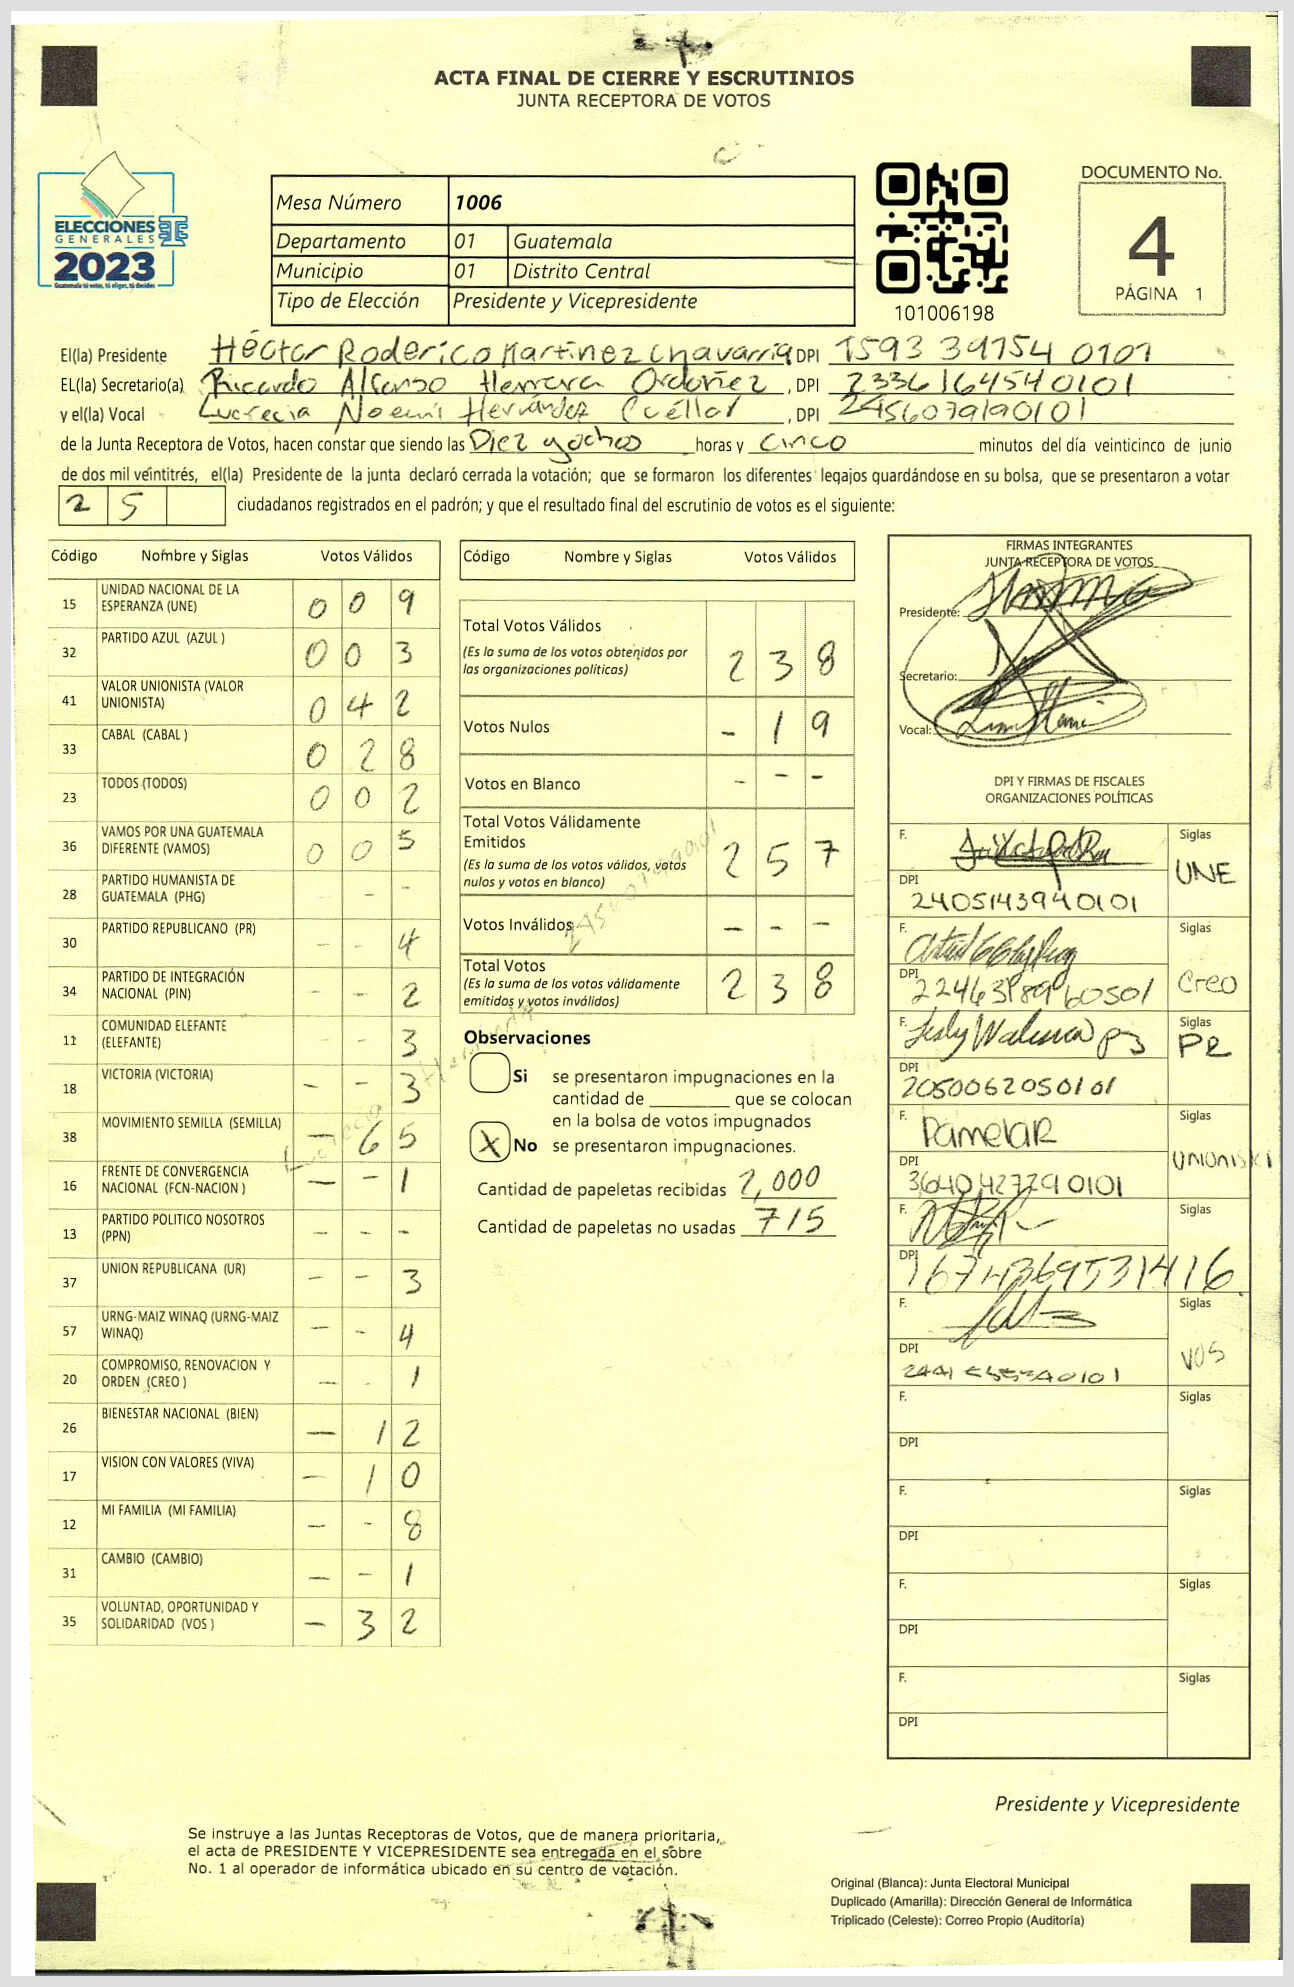 ACTA FINAL DE CIERRE Y ESCRUTINIOS
JUNTA RECEPTORA DE VOTOS
ELECCIONES
GENERALES
2023
Guatemala tú votas, tú eliges, tú decides
Mesa Número 1006
Departamento 01 Guatemala
Municipio 01 Distrito Central
Tipo de Elección Presidente y Vicepresidente
101006198
DOCUMENTO No.
4
PÁGINA 1
El(la) Presidente Héctor Roderico Martinez Chavarria DPI 1593 39754 0101
EL(la) Secretario(a) Ricardo Alfonso Herrera Ordoñez, DPI 2336164540101
y el(la) Vocal Lucrecia Noemí Hernández Cuéllar, DPI 2456079190101
de la Junta Receptora de Votos, hacen constar que siendo las Diez y ochos horas y cinco minutos del día veinticinco de junio
de dos mil veintitrés, el(la) Presidente de la junta declaró cerrada la votación; que se formaron los diferentes legajos guardándose en su bolsa, que se presentaron a votar
2 5 ciudadanos registrados en el padrón; y que el resultado final del escrutinio de votos es el siguiente:
Código Nombre y Siglas Votos Válidos
15 UNIDAD NACIONAL DE LA ESPERANZA (UNE) 0 0 9
32 PARTIDO AZUL (AZUL ) 0 0 3
41 VALOR UNIONISTA (VALOR UNIONISTA) 0 4 2
33 CABAL (CABAL ) 0 2 8
23 TODOS (TODOS) 0 0 2
36 VAMOS POR UNA GUATEMALA DIFERENTE (VAMOS) 0 0 5
28 PARTIDO HUMANISTA DE GUATEMALA (PHG) - -
30 PARTIDO REPUBLICANO (PR) - - 4
34 PARTIDO DE INTEGRACIÓN NACIONAL (PIN) - - 2
11 COMUNIDAD ELEFANTE (ELEFANTE) - - 3
18 VICTORIA (VICTORIA) - - 3
38 MOVIMIENTO SEMILLA (SEMILLA) - 6 5
16 FRENTE DE CONVERGENCIA NACIONAL (FCN-NACION ) - - 1
13 PARTIDO POLITICO NOSOTROS (PPN) - - -
37 UNION REPUBLICANA (UR) - - 3
57 URNG-MAIZ WINAQ (URNG-MAIZ WINAQ) - - 4
20 COMPROMISO, RENOVACION Y ORDEN (CREO ) - - 1
26 BIENESTAR NACIONAL (BIEN) - 1 2
17 VISION CON VALORES (VIVA) - 1 0
12 MI FAMILIA (MI FAMILIA) - - 8
31 CAMBIO (CAMBIO) - - 1
35 VOLUNTAD, OPORTUNIDAD Y SOLIDARIDAD (VOS ) - 3 2
Código Nombre y Siglas Votos Válidos
Total Votos Válidos 2 3 8
(Es la suma de los votos obtenidos por
las organizaciones políticas)
Votos Nulos - 1 9
Votos en Blanco - - -
Total Votos Válidamente
Emitidos 2 5 7
(Es la suma de los votos válidos, votos
nulos y votos en blanco)
Votos Inválidos - - -
Total Votos 2 3 8
(Es la suma de los votos válidamente
emitidos y votos inválidos)
Observaciones
Si se presentaron impugnaciones en la
cantidad de ________ que se colocan
en la bolsa de votos impugnados
X No se presentaron impugnaciones.
Cantidad de papeletas recibidas 2,000
Cantidad de papeletas no usadas 715
FIRMAS INTEGRANTES
JUNTA RECEPTORA DE VOTOS
Presidente:
Secretario:
Vocal:
DPI Y FIRMAS DE FISCALES
ORGANIZACIONES POLÍTICAS
F. Siglas
UNE
DPI 2405143940101
F. Siglas
Creo
DPI
F. Siglas
PR
DPI 2050062050101
F. PamelaR Siglas
UNIONISt
DPI 3640427790101
F. Siglas
DPI
F. Siglas
VOS
DPI
F. Siglas
DPI
F. Siglas
DPI
F. Siglas
DPI
F. Siglas
DPI
Presidente y Vicepresidente
Se instruye a las Juntas Receptoras de Votos, que de manera prioritaria,
el acta de PRESIDENTE Y VICEPRESIDENTE sea entregada en el sobre
No. 1 al operador de informática ubicado en su centro de votación.
Original (Blanca): Junta Electoral Municipal
Duplicado (Amarilla): Dirección General de Informática
Triplicado (Celeste): Correo Propio (Auditoría)